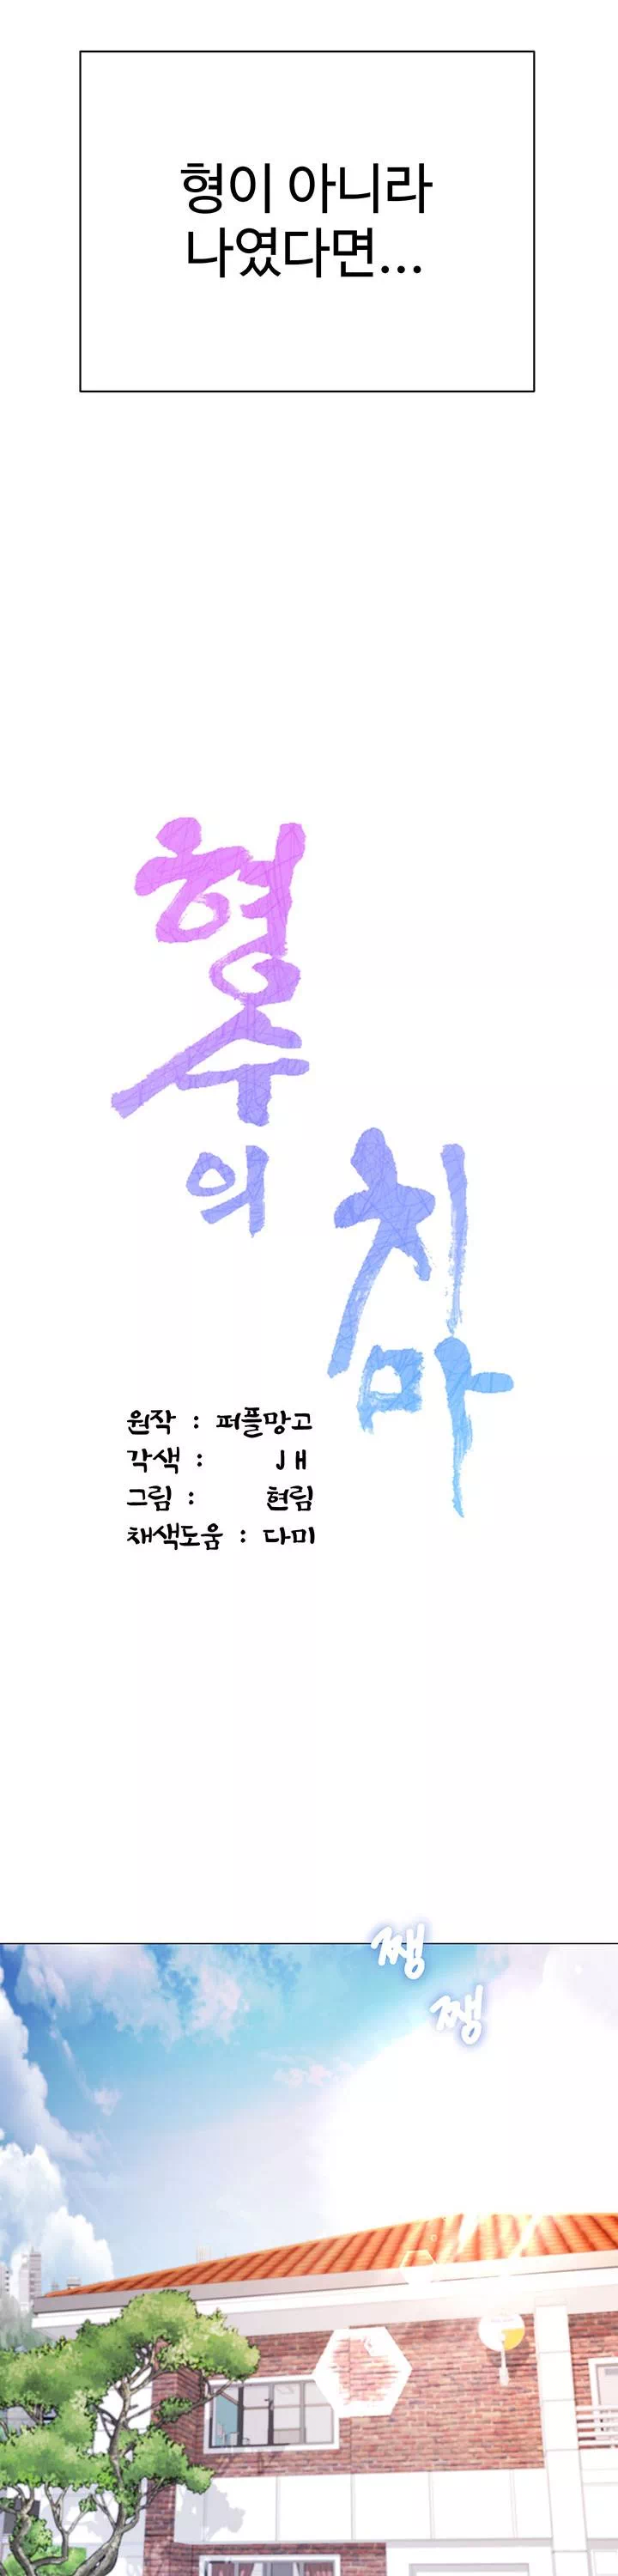 형이 아니라
나였다면...
형수의
치마
원작 : 퍼플망고
각색 : JH
그림 : 현림
채색도움 : 다미
쨍
쨍